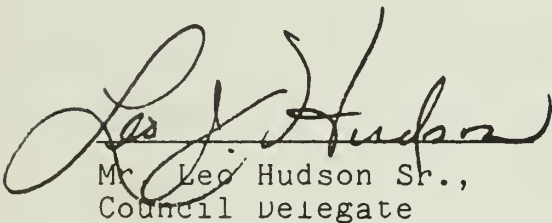 Leo J. Hudson
Mr. Leo Hudson Sr.,
Council Delegate